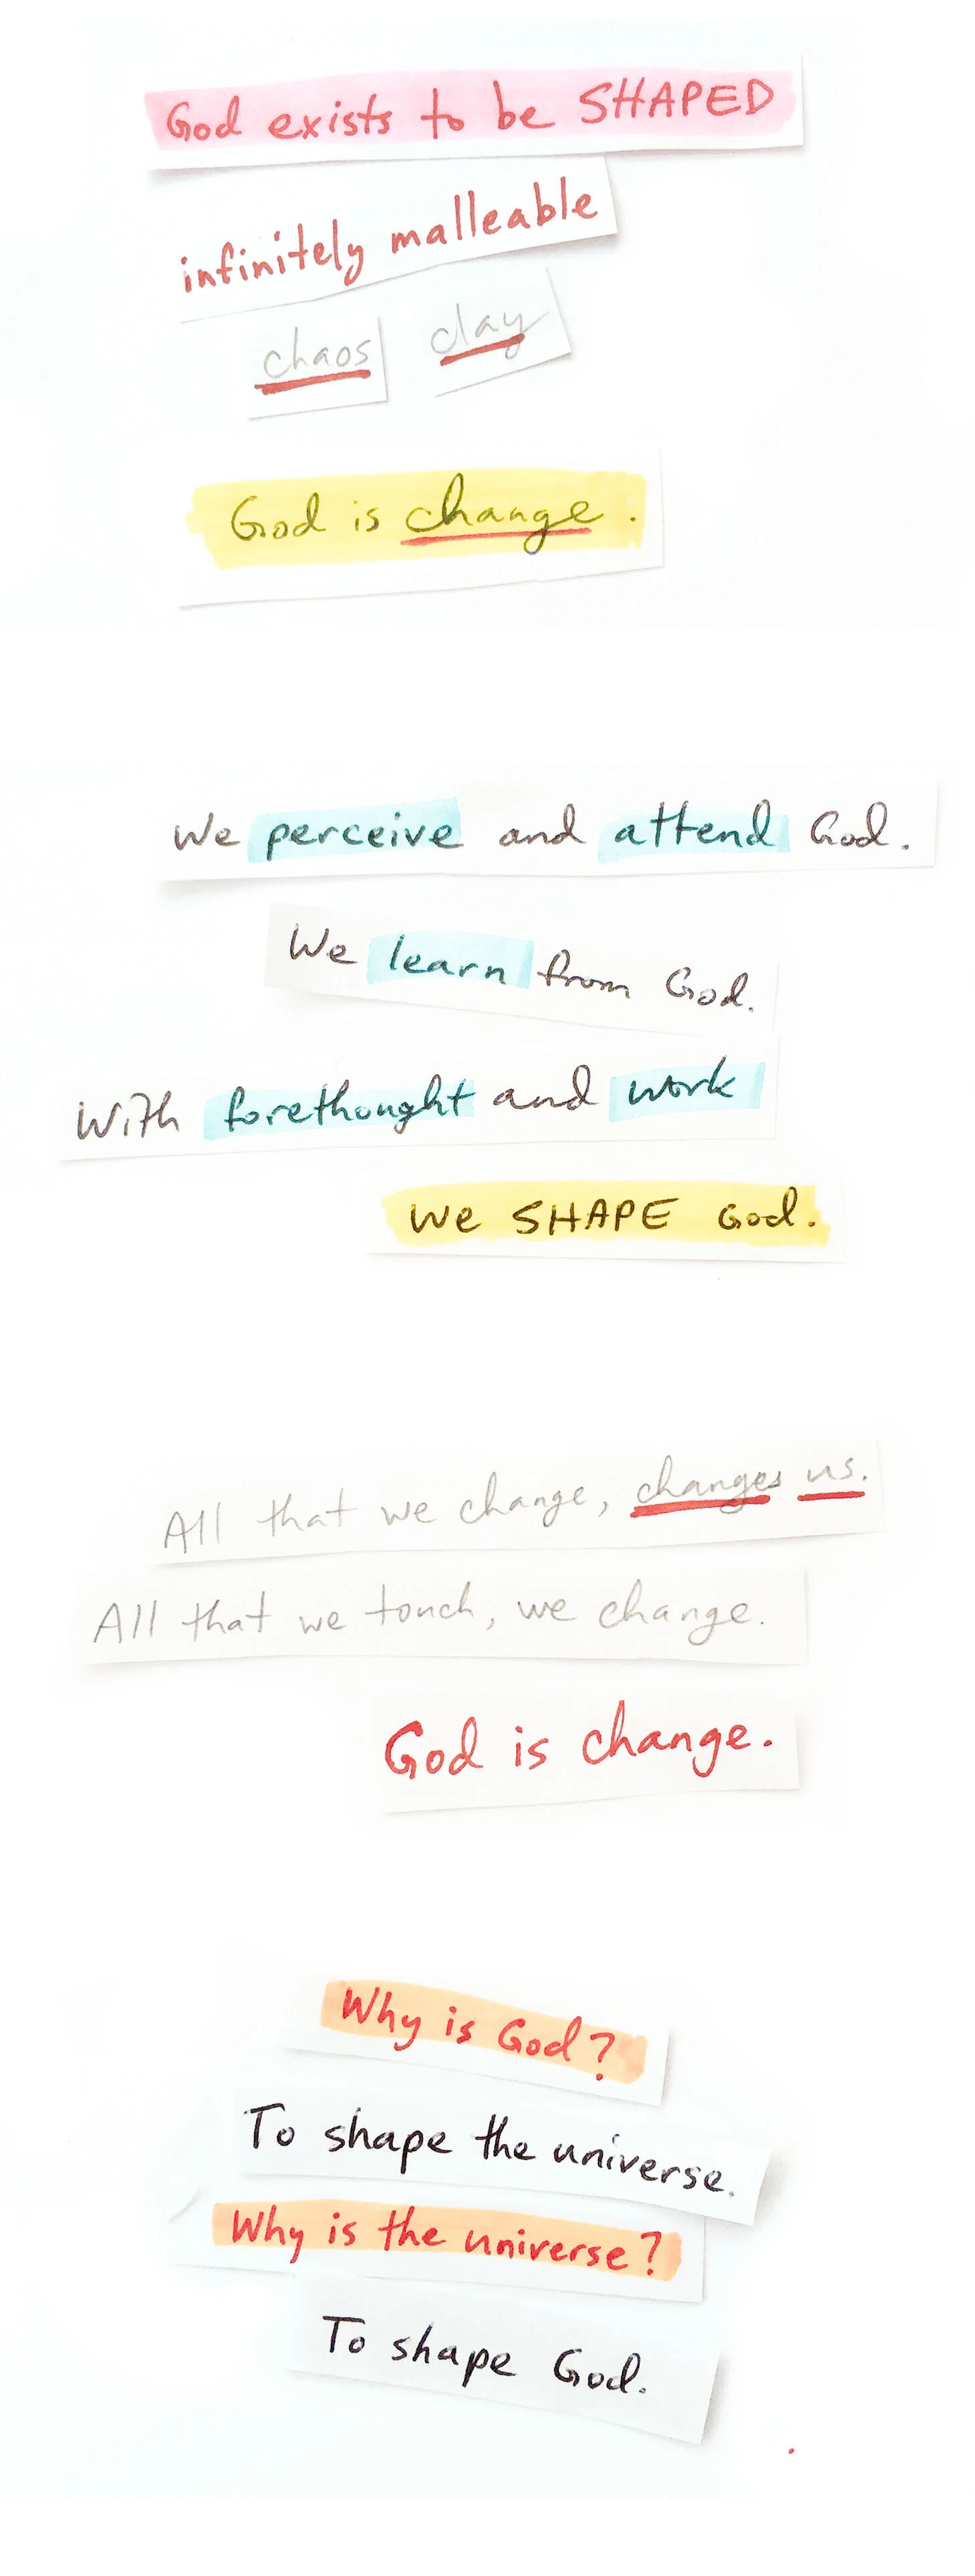 God exists to be SHAPED
infinitely malleable
chaos clay
God is change.
We perceive and attend God.
We learn from God.
With forethought and work
We SHAPE God.
All that we change, changes us.
All that we touch, we change.
God is change.
Why is God?
To shape the universe.
Why is the universe?
To shape God.